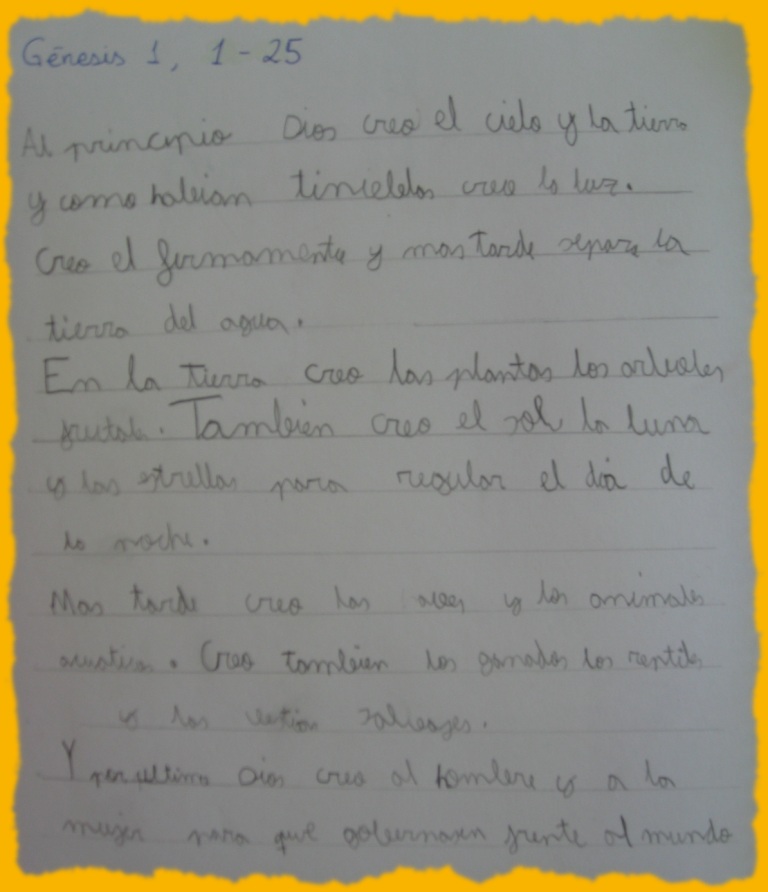 Génesis 1, 1 - 25
Al principio Dios creo el cielo y la tierra
y como habian tinieblas creo la luz.
Creo el firmamento y mas tarde separa la
tierra del agua.
En la tierra creo las plantas los arboles
frutals. También creo el sol la luna
y las estrellas para regular el dia de
la noche.
Mas tarde creo las aves y los animales
acuatico. Creo tambien los ganados los reptiles
y las bestias salvages.
Y por ultimo Dios creo al hombre y a la
mujer para que gobernasen frente al mundo